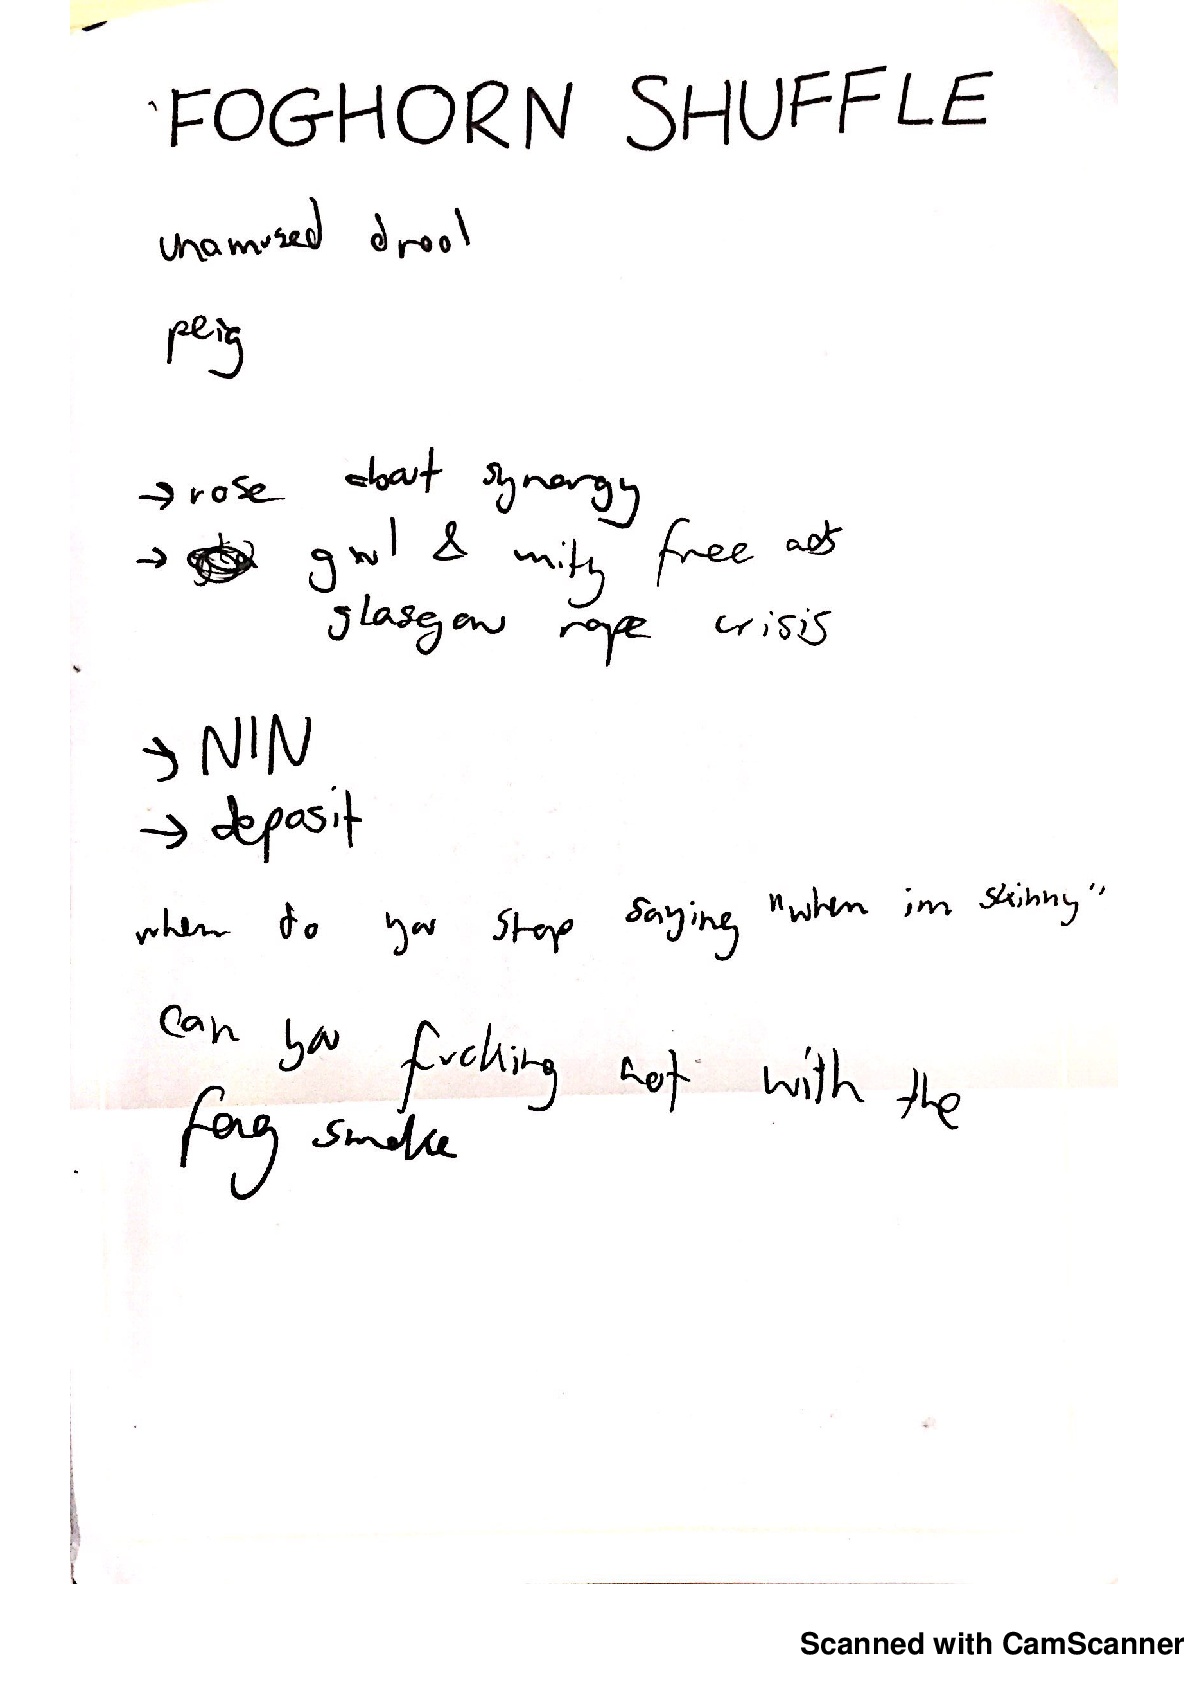 FOGHORN SHUFFLE
unamused drool
peig
→ rose about synergy
→ gwl & mity free ads
glasgow rape crisis
→ NIN
→ deposit
when do you stop saying "when im skinny"
can you fucking not with the
fong smoke
Scanned with CamScanner